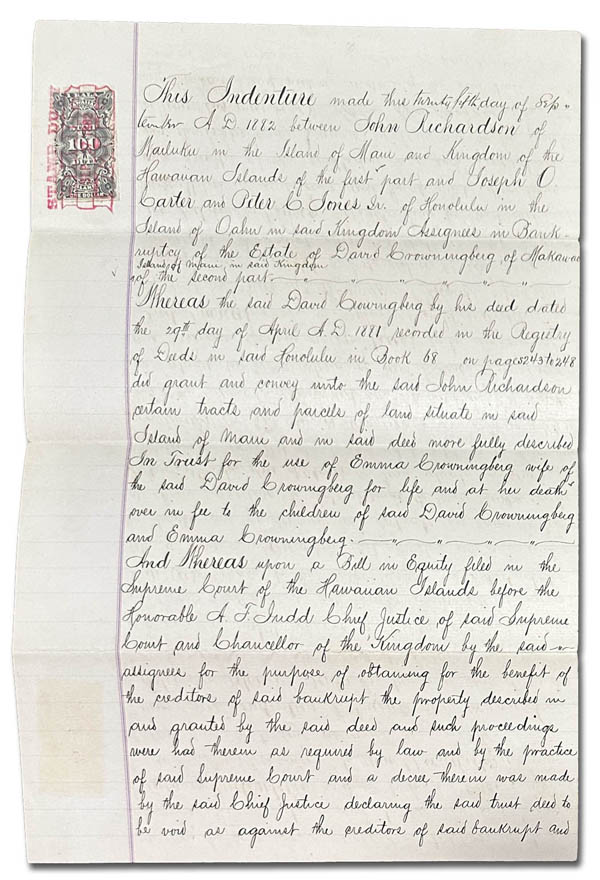 STAMP DUTY
100
This Indenture made this twenty fifth day of Sep-
tember A.D. 1882 between John Richardson of
Wailuku in the Island of Maui and Kingdom of the
Hawaiian Islands of the first part and Joseph O.
Carter and Peter C. Jones Jr. of Honolulu in the
Island of Oahu in said Kingdom Assignees in Bank-
ruptcy of the Estate of David Crowningberg, of Makawao
Island of Maui, in said Kingdom
of the second part
Whereas the said David Crowningberg by his deed dated
the 29th day of April A.D. 1881 recorded in the Registry
of Deeds in said Honolulu in Book 68 on pages 243 to 248
did grant and convey unto the said John Richardson
certain tracts and parcels of land situate in said
Island of Maui and in said deed more fully described
In Trust for the use of Emma Crowningberg wife of
the said David Crowningberg for life and at her death
over in fee to the children of said David Crowningberg
and Emma Crowningberg.
And Whereas upon a Bill in Equity filed in the
Supreme Court of the Hawaiian Islands before the
Honorable A. F. Judd Chief Justice of said Supreme
Court and Chancellor of the Kingdom by the said
assignees for the purpose of obtaining for the benefit of
the creditors of said bankrupt the property described in
and granted by the said deed and such proceedings
were had therein as required by law and by the practice
of said Supreme Court and a decree therein was made
by the said Chief Justice declaring the said trust deed to
be void as against the creditors of said bankrupt and